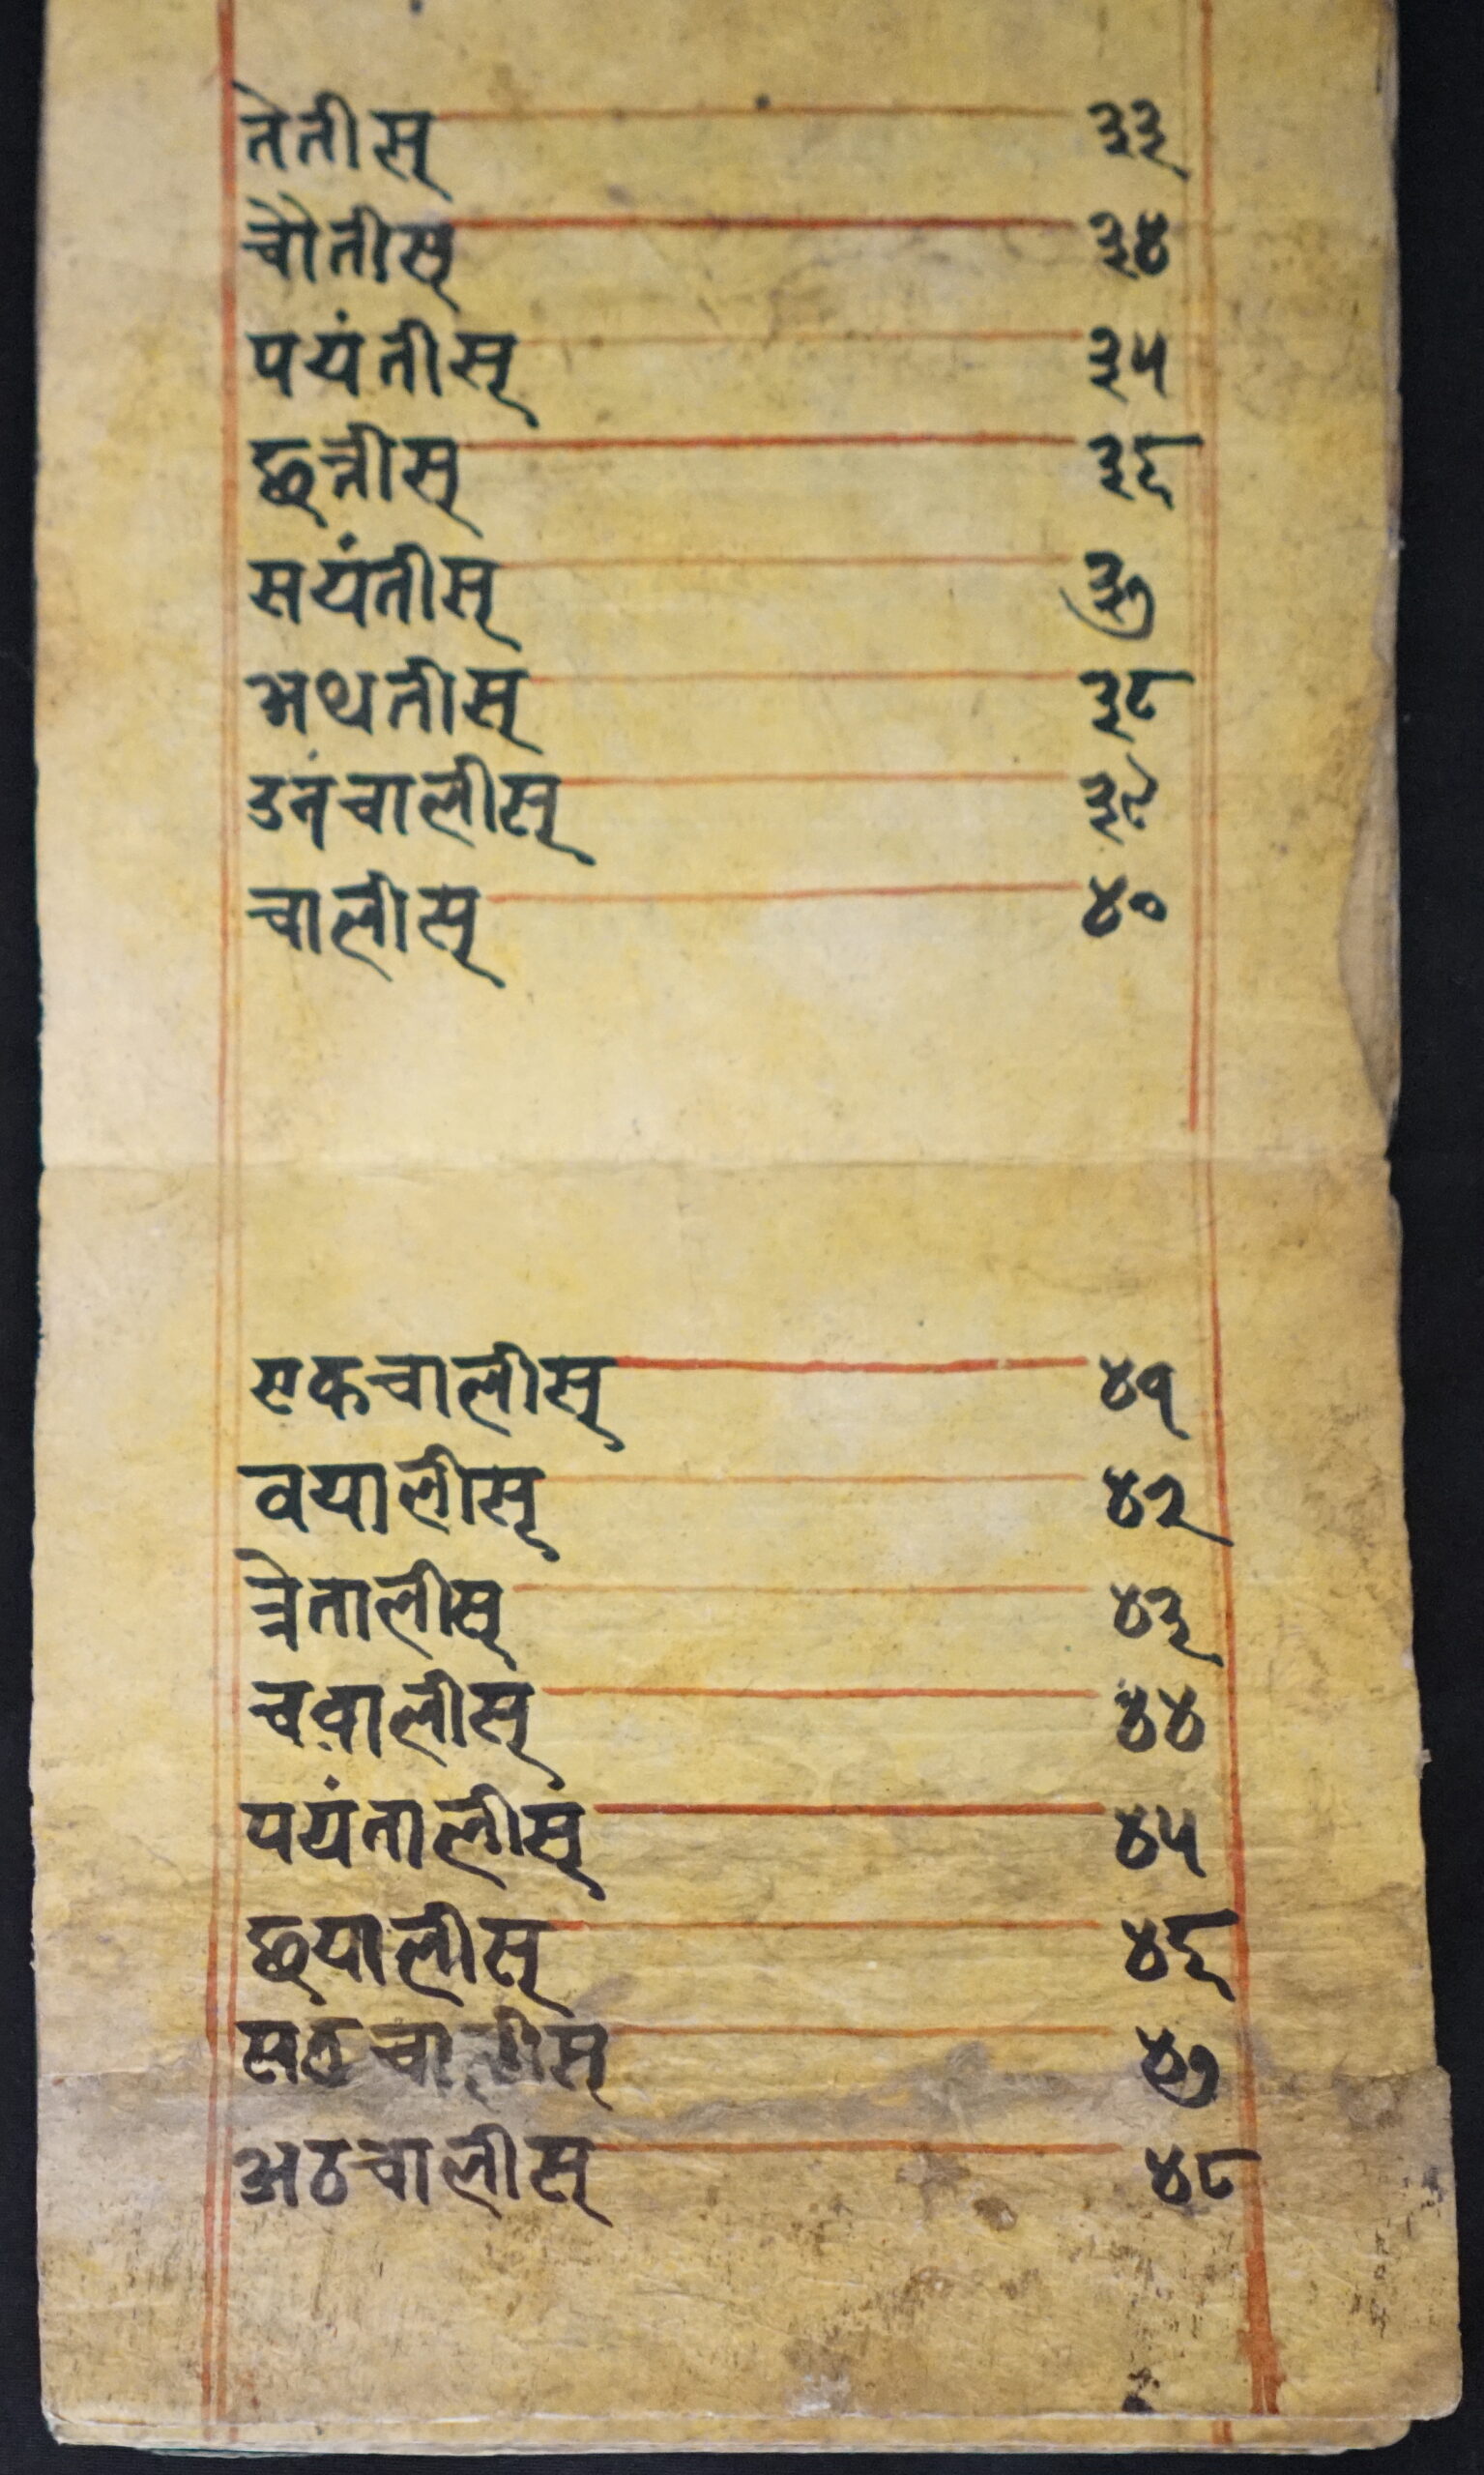 तेतीस् ३३
चौतीस् ३४
पयंतीस् ३५
छत्रीस् ३६
सयंतीस् ३७
अथतीस् ३८
उनंचालीस् ३९
चालीस् ४०
एकचालीस् ४१
वयालीस् ४२
त्रेतालीस् ४३
चवालीस् ४४
पयंतालीस् ४५
छयालीस् ४६
चालीस् ४७
अठचालीस् ४८